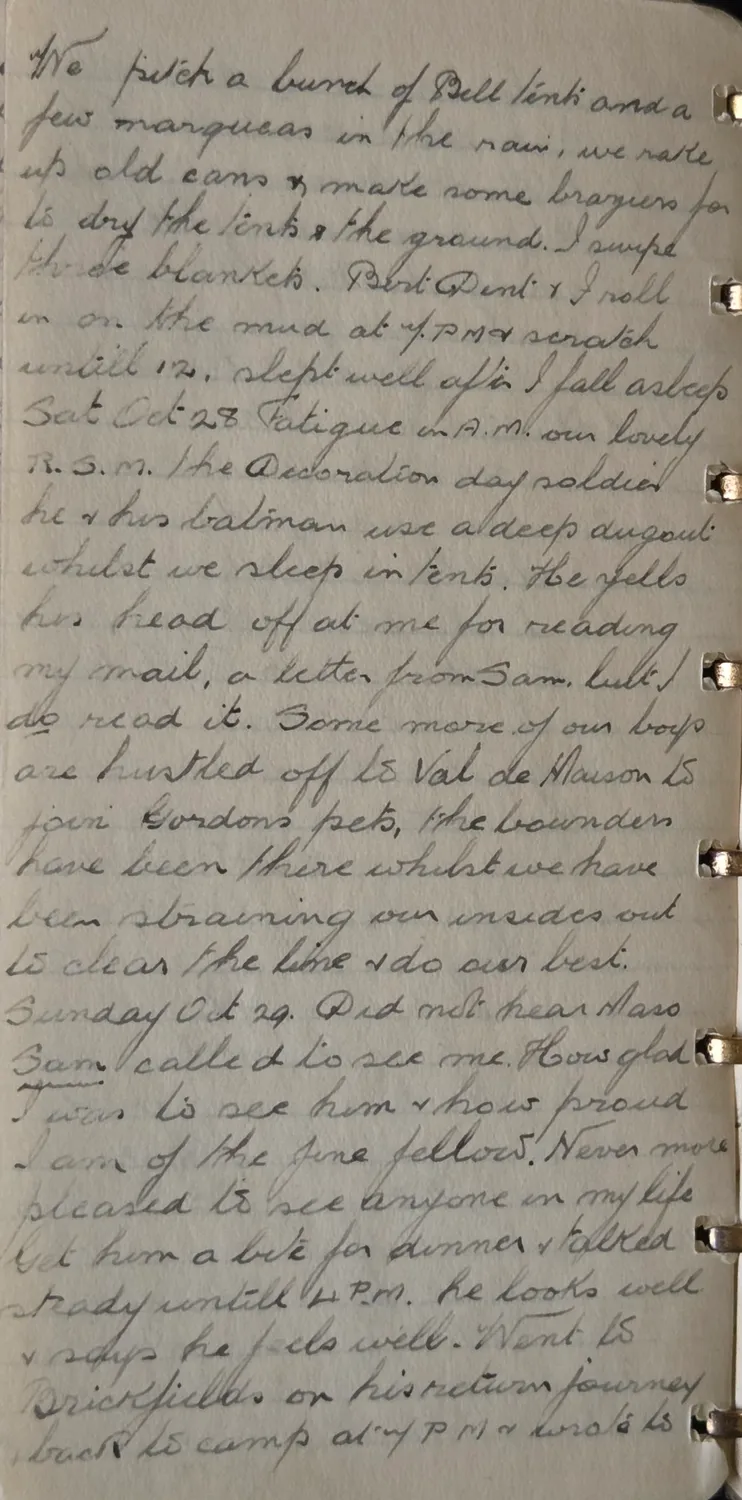 We pitch a bunch of Bell tents and a
few marqueas in the rain, we rake
up old cans & make some braziers for
to dry the tents & the ground. I swipe
three blankets. Bert Dent & I roll
in on the mud at 7. P M & scratch
untill 12. slept well after I fall asleep
Sat Oct 28 Fatigue in A.M. our lovely
R.S.M. the Decoration day soldier
he & his batman use a deep dugout
whilst we sleep in tents. He yells
his head off at me for reading
my mail, a letter from Sam. but I
do read it. Some more of our boys
are hustled off to Val de Maison to
join Gordons pets, the bounders
have been there whilst we have
been straining our insides out
to clear the line & do our best.
Sunday Oct 29. Did not hear Mass
Sam called to see me. How glad
I was to see him & how proud
I am of the fine fellow. Never more
pleased to see anyone in my life
Get him a bite for dinner & talked
steady untill 4 P.M. he looks well
& says he feels well. Went to
Brickfields on his return journey
back to camp at 7 P M & wrote to